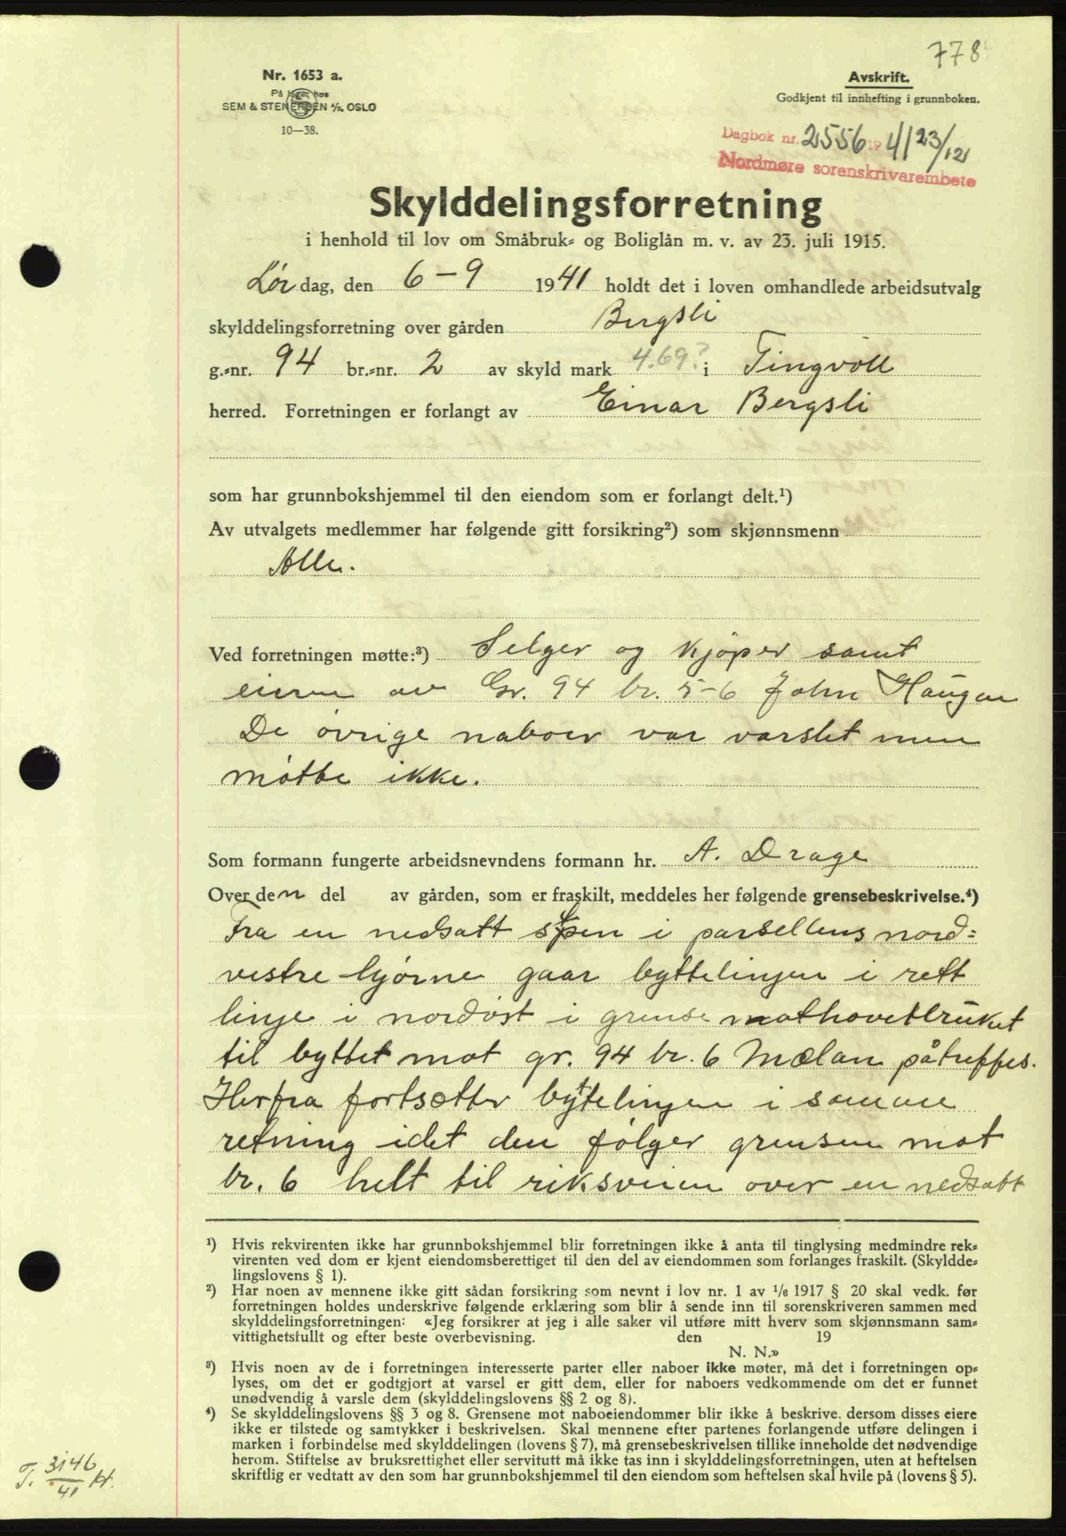 778
Nr. 1653 a.
På lager hos
SEM & STENERSEN A/S. OSLO
10—38.
Avskrift.
Godkjent til innhefting i grunnboken.
Dagbok nr. 2556 1941 23/12
Nordmøre sorenskrivarembete
Skylddelingsforretning
i henhold til lov om Småbruk- og Boliglån m. v. av 23. juli 1915.
Lørdag, den 6-9 1941 holdt det i loven omhandlede arbeidsutvalg
skylddelingsforretning over gården Bergsli
g.-nr. 94 br.-nr. 2 av skyld mark 4.69? i Tingvoll
herred. Forretningen er forlangt av Einar Bergsli
som har grunnbokshjemmel til den eiendom som er forlangt delt.¹)
Av utvalgets medlemmer har følgende gitt forsikring²) som skjønnsmenn
Alle.
Ved forretningen møtte:³) Selger og kjøper samt
eieren av Gr. 94 br. 5-6 John Haugan
De øvrige naboer var varslet men
møtte ikke.
Som formann fungerte arbeidsnevndens formann hr. A. Drage
Over den del av gården, som er fraskilt, meddeles her følgende grensebeskrivelse.⁴)
Fra en nedsatt sten i parsellens nord-
vestre hjørne gaar byttelinjen i rett
linje i nordøst i grense mot hovetbruket
til byttet mot gr. 94 br. 6 Mælan påtreffes.
Herfra fortsætter byttelinjen i samme
retning idet den følger grensen mot
br. 6 helt til riksveien over en nedsatt
¹) Hvis rekvirenten ikke har grunnbokshjemmel blir forretningen ikke å anta til tinglysing medmindre rek-
virenten ved dom er kjent eiendomsberettiget til den del av eiendommen som forlanges fraskilt. (Skyldde-
lingslovens § 1).
²) Har noen av mennene ikke gitt sådan forsikring som nevnt i lov nr. 1 av 1/6 1917 § 20 skal vedk. før
forretningen holdes underskrive følgende erklæring som blir å sende inn til sorenskriveren sammen med
skylddelingsforretningen: «Jeg forsikrer at jeg i alle saker vil utføre mitt hverv som skjønnsmann sam-
vittighetsfullt og efter beste overbevisning. den 19
N. N.»
³) Hvis noen av de i forretningen interesserte parter eller naboer ikke møter, må det i forretningen op-
lyses, om det er godtgjort at varsel er gitt dem, eller for naboers vedkommende om det er funnet
unødvendig å varsle dem (skylddelingslovens §§ 2 og 8).
⁴) Se skylddelingslovens §§ 3 og 8. Grensene mot naboeiendommer blir ikke å beskrive. dersom disses eiere
ikke er tilstede og samtykker i beskrivelsen. Skal mennene efter partenes forlangende utføre delingen i
marken i forbindelse med skylddelingen (lovens § 7), må grensebeskrivelsen tillike inneholde det nødvendige
herom. Stiftelse av bruksrettighet eller servitutt må ikke tas inn i skylddelingsforretningen, uten at heftelsen
skriftlig er vedtatt av den som har grunnbokshjemmel til den eiendom som heftelsen skal hvile på (lovens § 5).
T. 3146/41